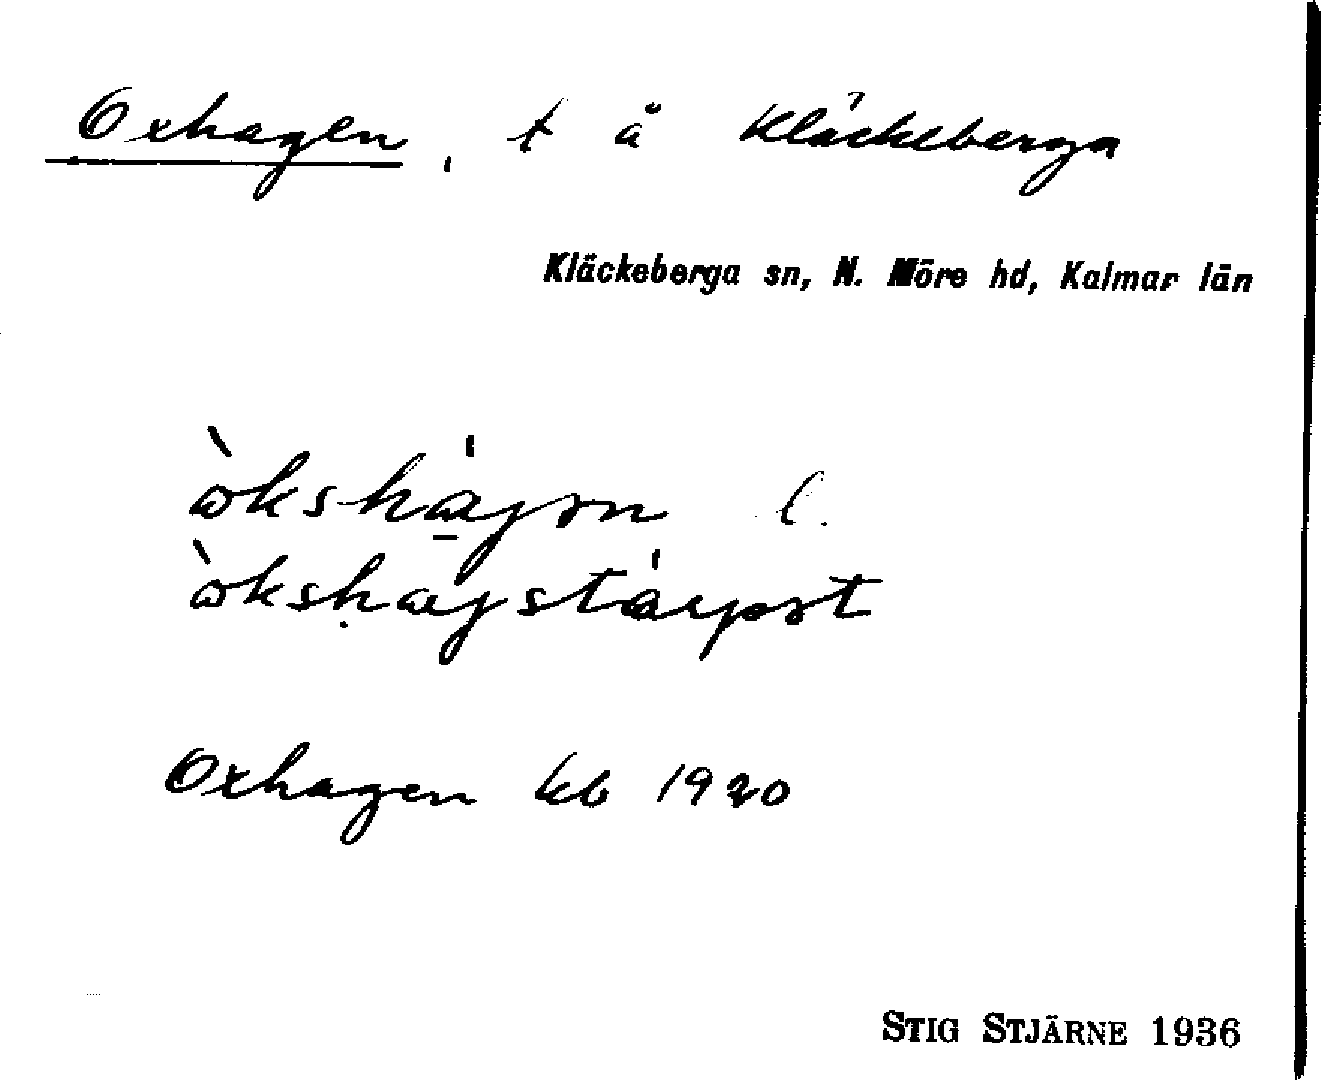 Oxhagen, t å Kläckeberga
Kläckeberga sn, N. Möre hd, Kalmar län
l.
Oxhagen kb 1920
STIG STJÄRNE 1936